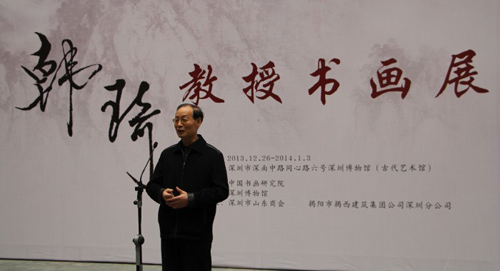 韩琦教授书画展
2013.12.26-2014.1.3
深圳市深南中路同心路六号深圳博物馆（古代艺术馆）
中国书画研究院
深圳博物馆
深圳市山东商会 揭阳市揭西建筑集团公司深圳分公司